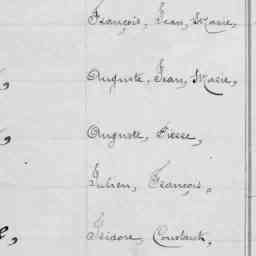 François, Jean, Marie,
Auguste, Jean, Marie,
Auguste, Pierre,
Julien, François,
Isidore, Constant,